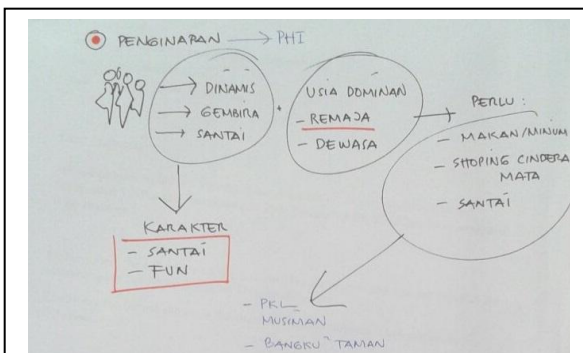 PENGINAPAN → PHI
→ DINAMIS
→ GEMBIRA
→ SANTAI
USIA DOMINAN
- REMAJA
- DEWASA
PERLU :
- MAKAN/MINUM
- SHOPING CINDERA
MATA
- SANTAI
KARAKTER
- SANTAI
- FUN
- PKL
MUSIMAN
- BANGKU TAMAN